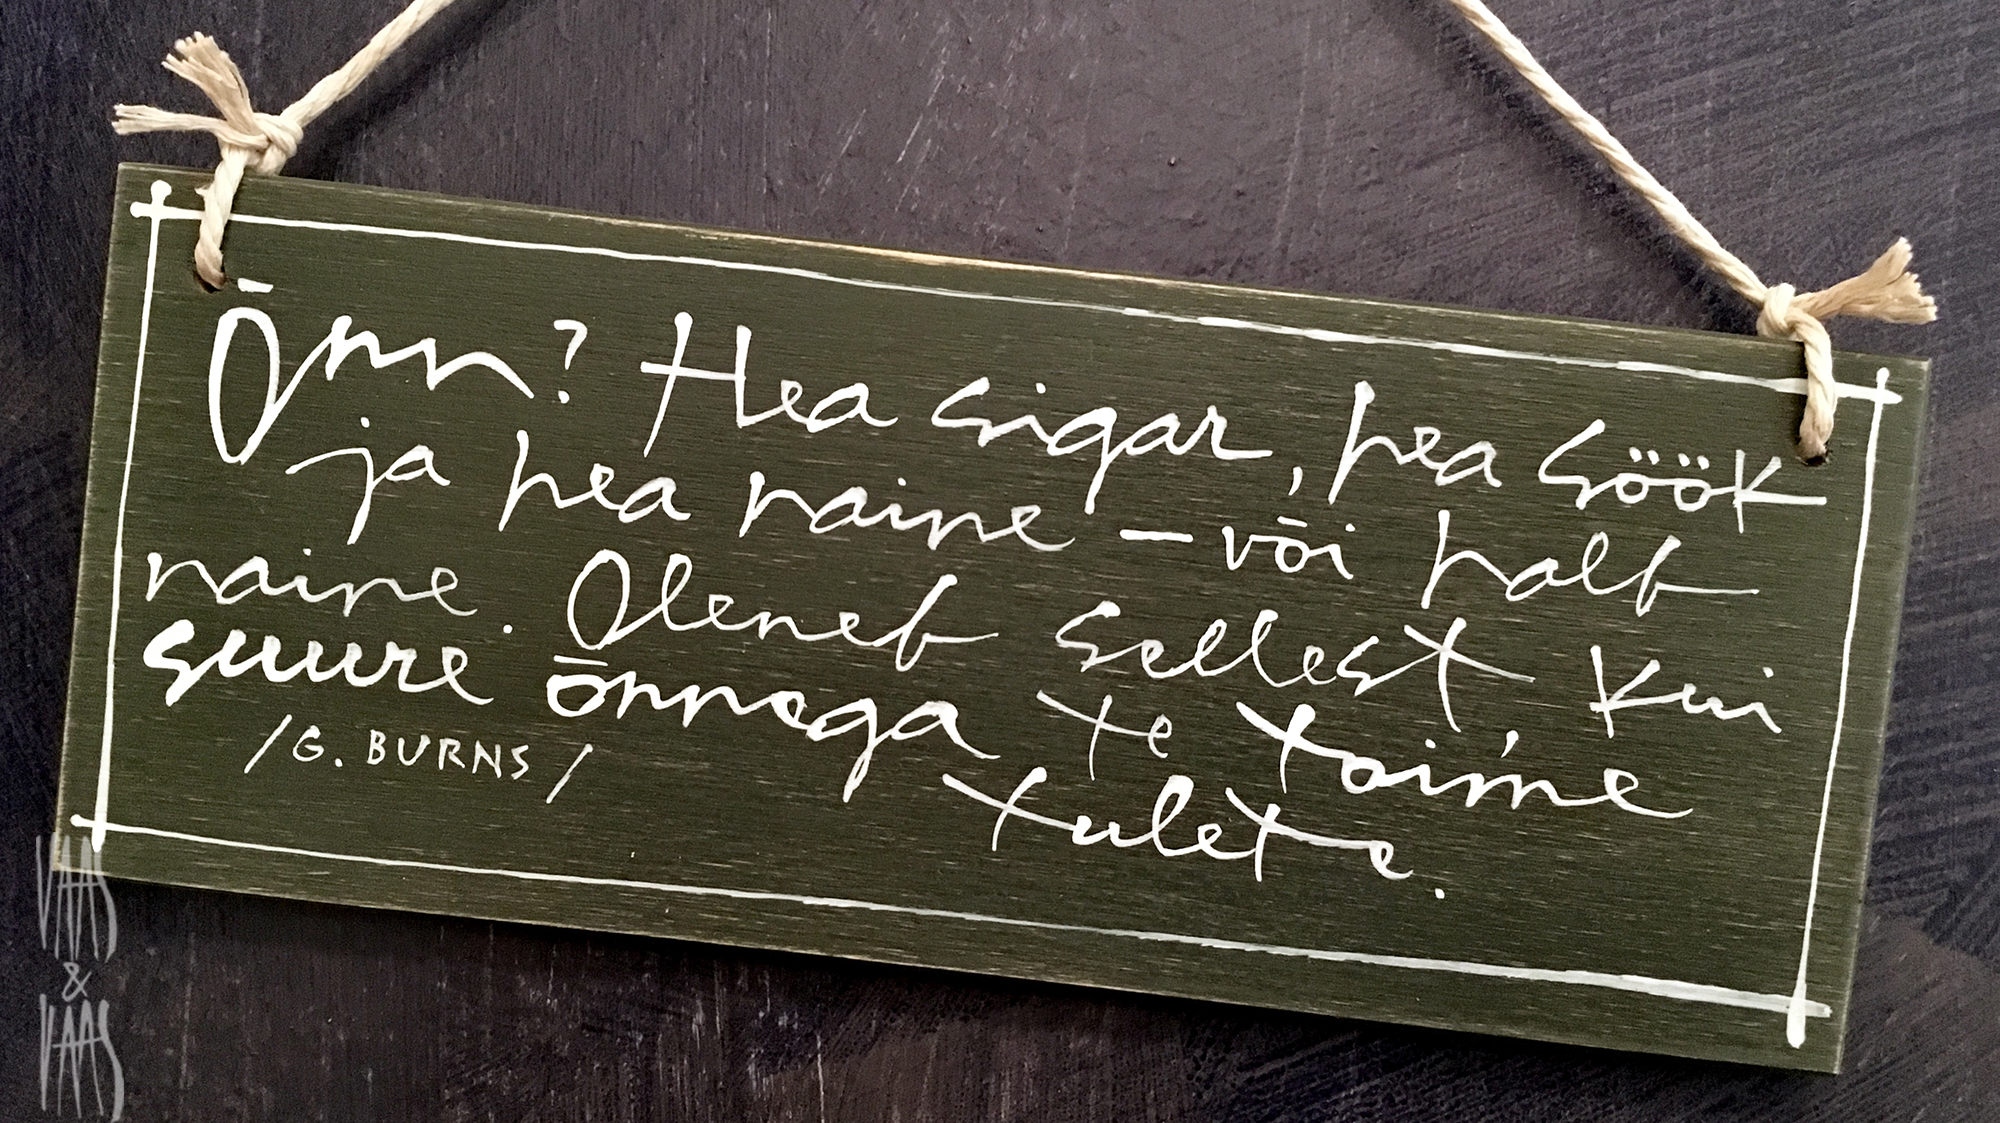 Õnn? Hea sigar, hea söök
ja hea naine – või halb
naine. Oleneb sellest, kui
suure õnnega te toime
tulete.
/G. BURNS/
VAAS
&
VAAS